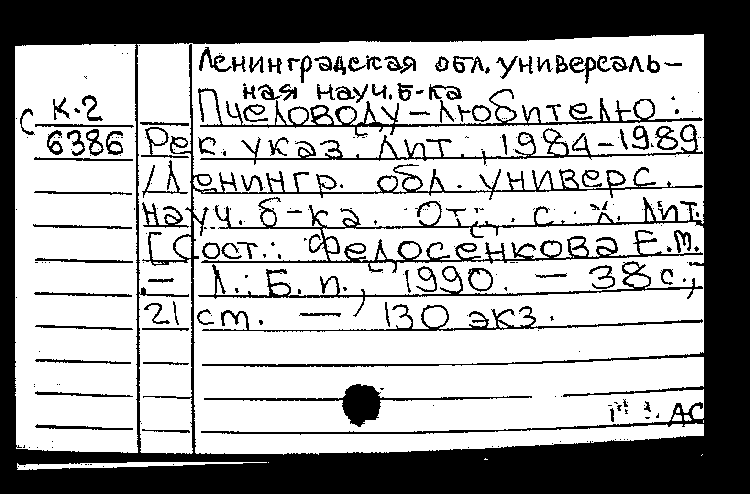 Ленинградская обл. универсаль-
ная науч. б-ка
С К.2
6386
Пчеловоду-любителю:
Рек. указ. лит., 1984-1989
/Ленингр. обл. универс.
науч. б-ка. Отд. с. х. лит.
[Сост.: Федосенкова Е.М.
.- Л.: Б. п., 1990. - 38 с.;
21 ст. - 130 экз.
АС